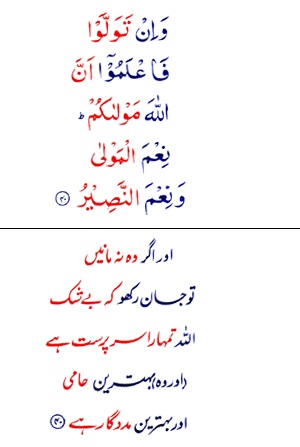 وَاِنْ تَوَلَّوْا
فَاعْلَمُوْۤا اَنَّ
اللّٰهَ مَوْلٰىكُمْ ؕ
نِعْمَ الْمَوْلٰى
وَنِعْمَ النَّصِيْرُ ﴿۴۰﴾
اور اگر وہ نہ مانیں
تو جان رکھو کہ بے شک
اللہ تمہارا سرپرست ہے
(اور وہ) بہترین حامی
اور بہترین مددگار ہے ﴿۴۰﴾